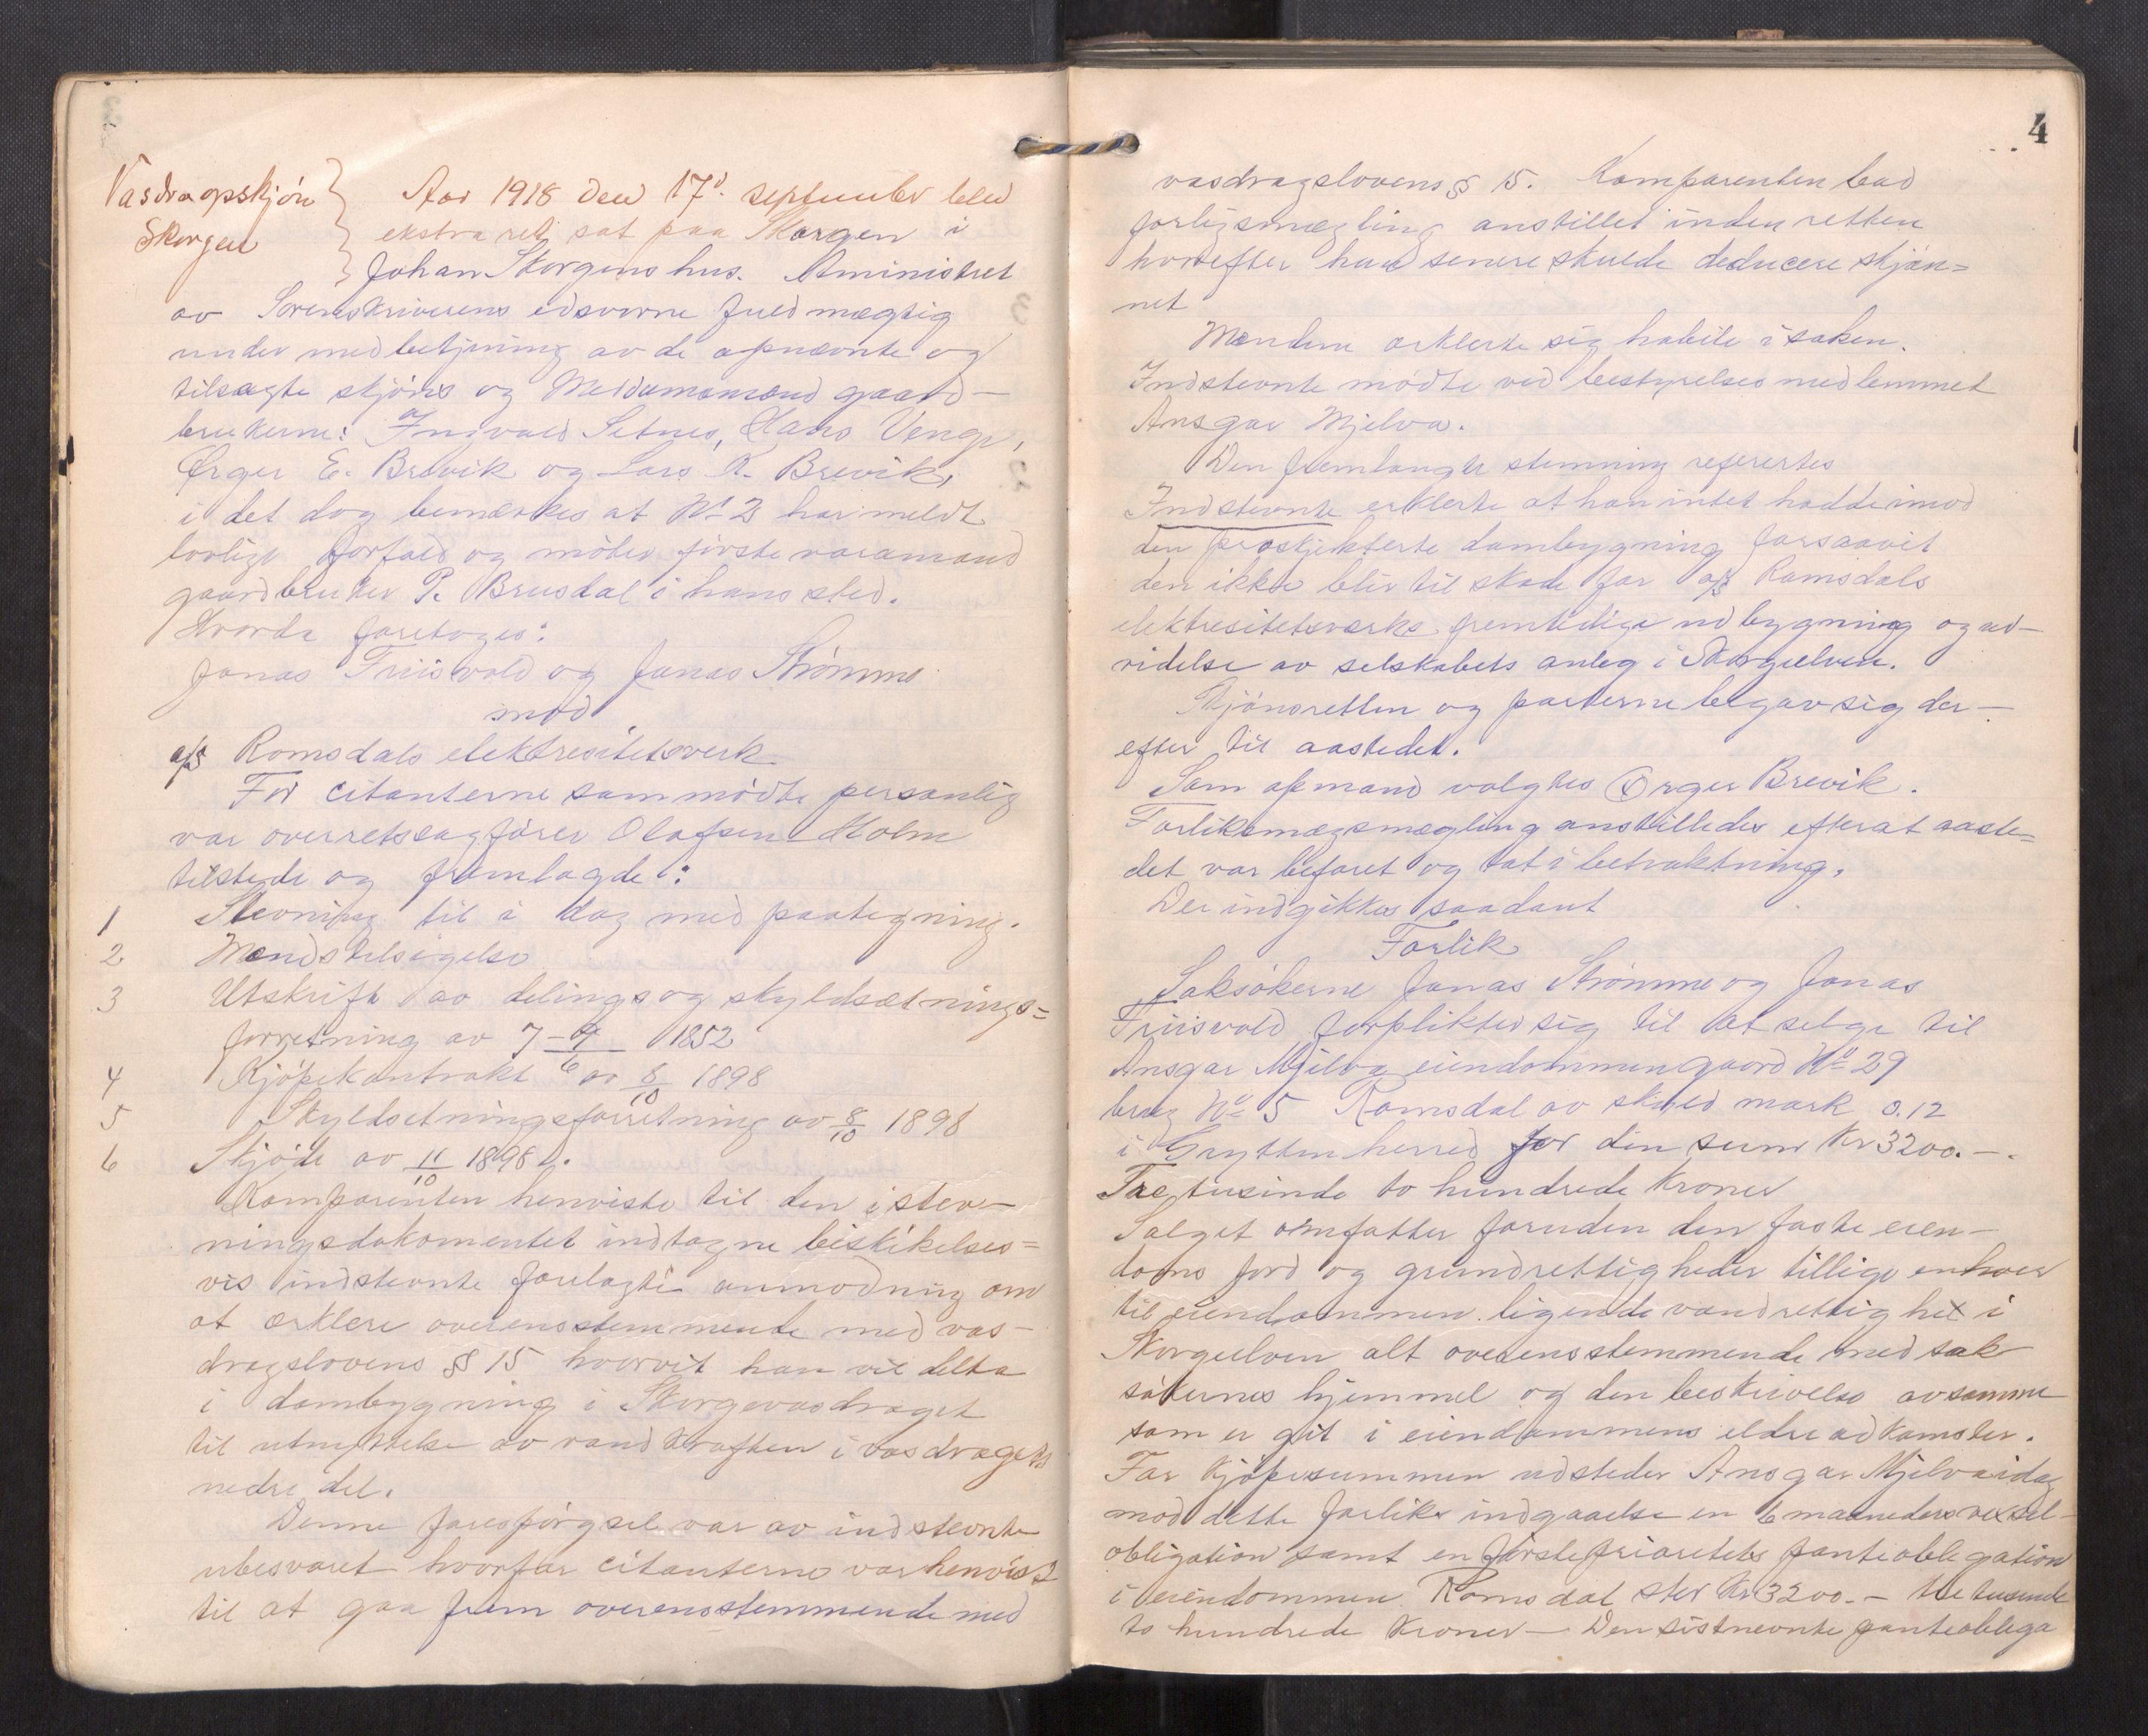 Vasdragsskjön
Skorgen
Aar 1918 den 17d. september blev
ekstraret sat paa Skorgen i
Johan Skorgens hus. Aministret
av Sorenskriverens edsvorne fuldmægtig
under medbetjening av de opnævnte og
tilsagte skjöns og Meddomsmænd gaard-
brukerne: Ingvald Setnes, Hans Venge,
Örger E. Brevik og Lars K. Brevik,
i det dog bemærkes at No 2 har meldt
lovlige forfald og möter förste varamand
gaardbruker P. Brusdal i hans sted.
Hvorda foretoges:
Jonas Friisvold og Jonas Strömme
mod
a/s Romsdals elektresitetsverk
For citanterne som mödte personlig
var overretssagförer Olafsen Holm
tilstede og fremlagde:
1 Stevning til i dag med paategning.
2 Mændstilsigelse
3 Utskrift av delings og skyldsætnings=
forretning av 7-9/6 1852
4 Kjöpekontrakt av 8/10 1898
5 Skyldsetningsforretning av 8/10 1898
6 Skjöde av 11/10 1898.
Komparenten henviste til den i stev-
ningsdokomentet indtagne beskikelses=
vis indstevnte forelagte anmodning om
at ærklere overensstemmende med vas-
dragslovens § 15 hvorvit han vil delta
i dambygning i Skorgevasdraget
til utnyttelse av vandkraften i vasdragets
nedre del.
Denne foresförgsel var av indstevnte
ubesvaret hvorfor citanterne var henvist
til at gaa frem overensstemmende med
4
vasdragslovens § 15. Komparenten bad
forligsmægling anstillet inden retten
hvorefter han senere skulde deducere skjön=
net
Mændene ærklerte sig habile i saken.
Indstevnte mödte ved bestyrelsesmedlemmet
Ansgar Mjelva.
Den fremlangte stemning referertes
Indstevnte erklerte at han intet hadde imod
den proskjekterte dambygning forsaavit
den ikke blir til skade for a/s Romsdals
elektresitetsverks fremtidige udbygning og ud-
videlse av selskabets anleg i Skorgeelven.
Skjönsretten og parterne begav sig der-
efter til aastedet.
Som opmand valgtes Örger Brevik.
Forliksmægsmegling anstilledes efterat aaste=
det var befaret og tat i betraktning.
Der indgikkes saadant
Forlik
Saksökerne Jonas Strömme og Jonas
Friisvold forplikter sig til at selge til
Ansgar Mjelva eiendommen gaard No 29
brug No 5 Romsdal av skyld mark 0.12
i Grytten herred for den sum Kr 3200.-.
Tre tusinde to hundrede kroner
Salget omfatter foruden den faste eien-
doms jord og grundrettigheder tillige enhver
til eiendommen ligende vandrettighet i
Skorgeelven alt overensstemmende med sak
sökernes hjemmel og den beskrivelse av samme
som er git i eiendommens eldre adkomster.
For kjöpesummen udsteder Ansgar Mjelva idag
mod dette forliks indgaaelse en 6 maaneders vexsel-
obligation samt en förste prioretets panteobligation
i eiendommen Romsdal stor Kr 3200.- tre tusinde
to hundrede kroner - Den sistnevnte panteobliga